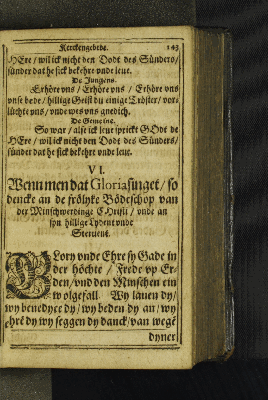 Kerckengebede. 143
HEre / wil ick nicht den Dodt des Sünders /
sünder dat he sick bekehre vnde leue.
De Jungens.
Erhöre vns / Erhöre vns / Erhöre vns
vnse bede / hillige Geist du einige Tröster / vor-
lüchte vns / vnde wes vns gnedich.
De Gemeine.
So war / alse ick leue sprickt GOdt de
HEre / wil ick nicht den Dodt des Sünders /
sünder dat he sick bekehre vnde leue.
VI.
Wenn men dat Gloria singet / so
dencke an de frölyke Bödeschop van
der Minschwerdinge Christi / vnde an
syn hillige Lydent vnde
Steruent.
GLory vnde Ehre sy Gade in
der höchte / Frede vp Er-
den / vnd den Minschen ein
wolgefall. Wy lauen dy /
wy benedyen dy / wy beden dy an / wy
ehrē dy wy seggen dy danck / van wegē
dyner